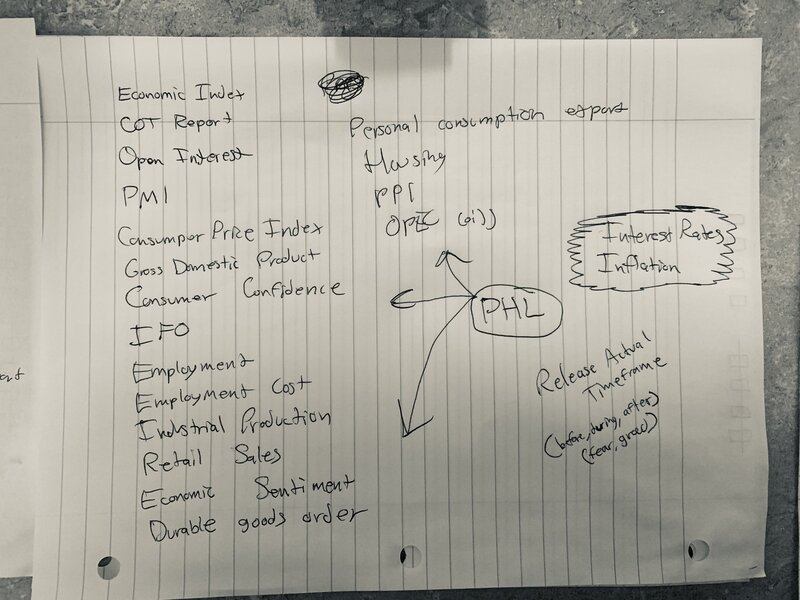 Economic Index
COT Report
Open Interest
PMI
Consumper Price Index
Gross Domestic Product
Consumer Confidence
IFO
Employment
Employment Cost
Industrial Production
Retail Sales
Economic Sentiment
Durable goods order
Personal consumption
Housing
PPI
OPEC (oil)
PHL
Interest Rates
Inflation
Release Actual
Timeframe
(before, during, after)
(fear, greed)